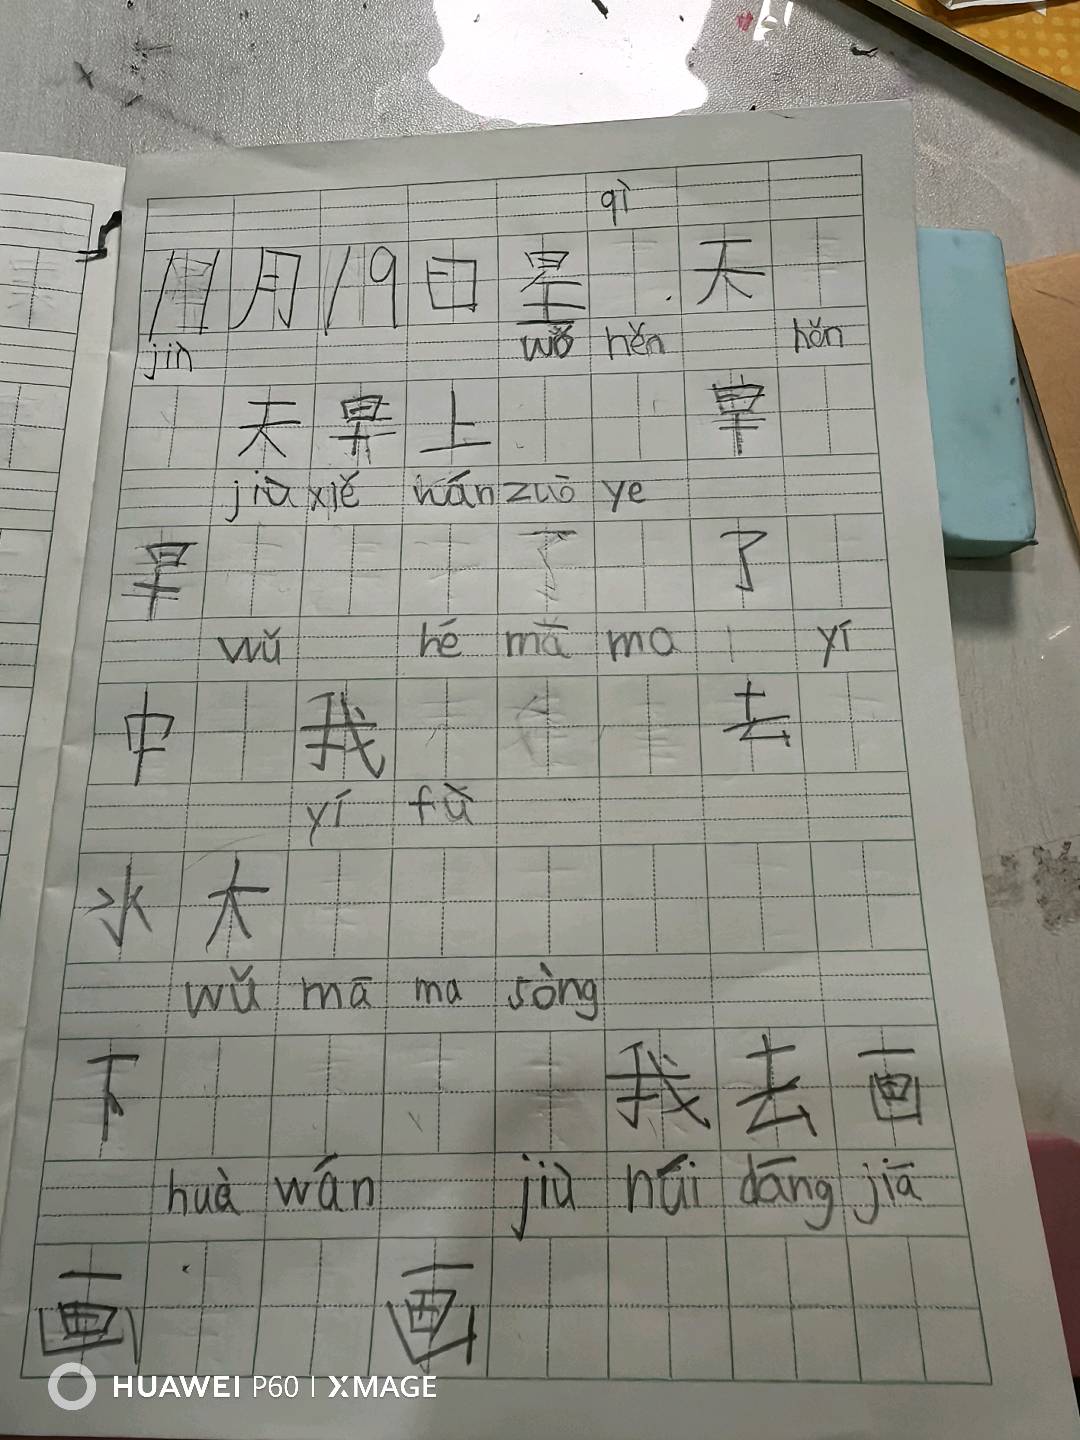 qì
11月19日星天
jīn wǒ hěn hǎn
天早上早
jiù xiě hánzuò ye
早了了
wǔ hé mā ma yí
中我去
yí fǔ
水大
wǔ mā ma sòng
下我去画
huà wán jiù húi dāng jiā
画画
HUAWEI P60 | XMAGE